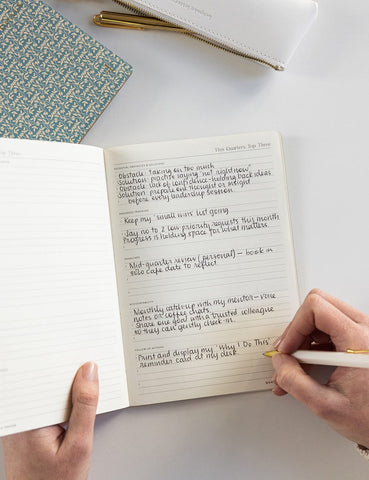 This Quarter's Top Three
Obstacle: taking on too much
Solution: practise saying 'not right now'
Obstacle: lack of confidence - holding back ideas
Solution: prepare one thought or insight
before every leadership session
Keep my 'small wins' list going
Say no to 2 low-priority requests this month
Progress is holding space for what matters.
Mid-quarter review (personal) – book in
solo cafe date to reflect.
Monthly catch-up with my mentor – voice
notes or coffee chats
Share one goal with a trusted colleague
so they can gently check-in.
Print and display my 'Why I Do This'
reminder card at my desk.